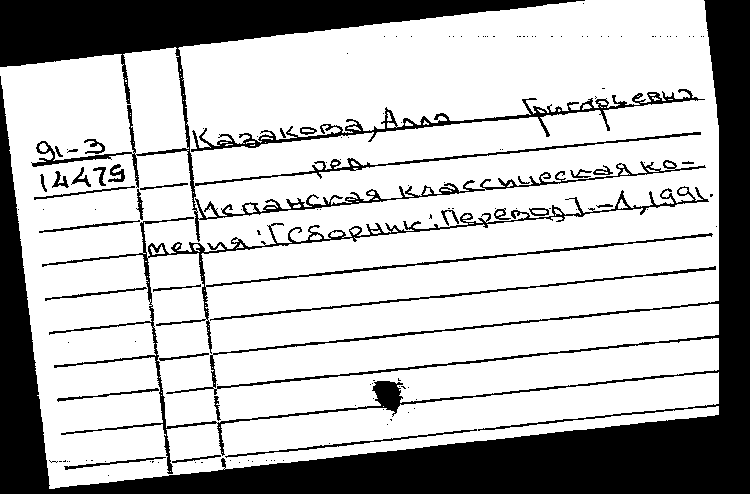 91-3
14479
Казакова, Алла Григорьевна
ред.
Испанская классическая ко-
медия: [Сборник: Перевод]. -Л., 1991.